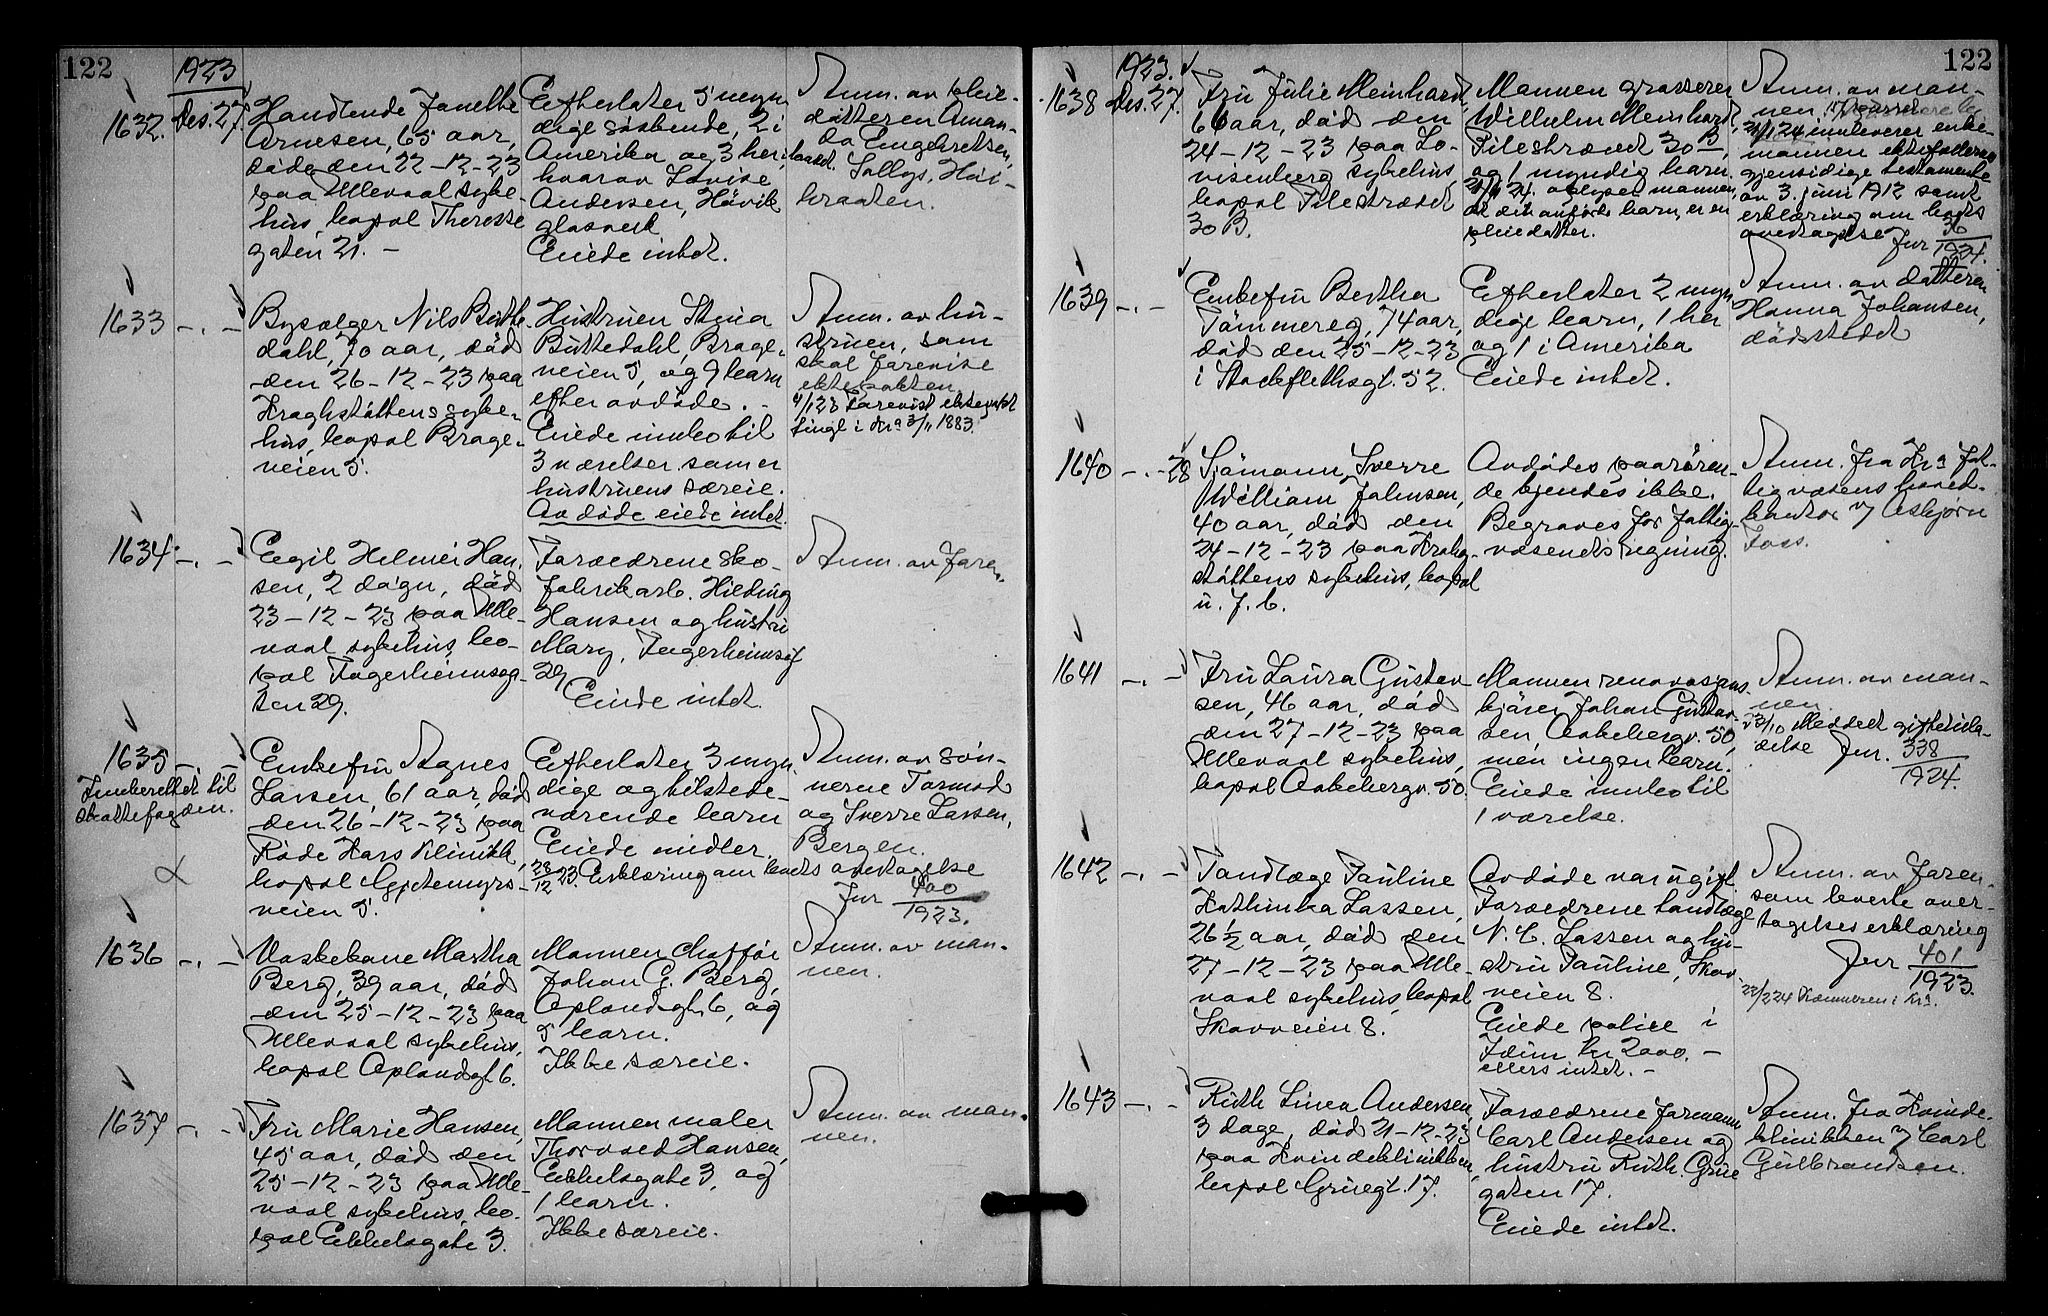 122
1923
1632. Des. 27.
Handlende Janethe
Arnesen, 65 aar,
døde den 22-12-23
paa Ullevaal syke-
hus, bopæl Therese
gaten 21. -
Efterlater 5 myn
dige søskende, 2 i
Amerika og 3 her i landet
hvorav Lovise
Andersen, Høvik
glasverk
Eiede intet.
Anm. av pleie-
datteren Aman-
da Engebretsen,
Sollys, Høi-
braaten.
1633 -.-
Bypælger Nils Butte-
dahl, 70 aar, død
den 26-12-23 paa
Kroghstøttens syke-
hus, bopæl Brage-
veien 5.
Hustruen Stina
Buttedahl, Brage-
veien 5, og 9 barn
efter avdøde. -
Eiede innbo til
3 værelser som er
hustruens særeie.
Avdøde eiede intet.
Anm. av hu-
struen, som
skal forevise
ektepakten
4/1 23 Forevist ektepakt
tingl i Kra 3/11 1883.
1634 -.-
Egil Helmer Han-
sen, 2 døgn, død
23-12-23 paa Ulle-
vaal sykehus, bo-
pæl Fagerheimsga-
ten 29.
Forældrene sko-
fabrikarb. Hilding
Hansen og hustru
Mary, Fagerheimsgt
29
Eiede intet.
Anm. av faren.
1635 -.-
Innberettet til
skattefogden.
Enkefru Agnes
Lassen, 61 aar, død
den 26-12-23 paa
Røde Kors Klinikk,
bopæl Gjetemyrs-
veien 5.
Efterlater 3 myn
dige og tilstede-
værende barn
Eiede midler.
28/12 23. Erklæring om boets overtagelse
Jnr 400/1923.
Anm. av søn-
nerne Tormod
og Sverre Lassen,
Bergen.
1636 -.-
Vaskekone Martha
Berg, 39 aar, død
den 25-12-23 paa
Ullevaal sykehus,
bopæl Oplandgt 6.
Mannen chaffør
Johan G. Berg,
Oplandgt. 6, og
5 barn.
Ikke særeie.
Anm. av man-
nen.
1637 -.-
Fru Marie Hansen,
45 aar, død den
25-12-23 paa Ulle-
vaal sykehus, bo-
pæl Ebbelsgate 3.
Mannen maler
Thorvald Hansen,
Ebbelsgate 3, og
1 barn.
Ikke særeie.
Anm. av man-
nen.
122
1923.
1638 Des. 27.
Fru Julie Meinhardt,
66 aar, død den
24-12-23 paa Lo-
visenberg sykehus,
bopæl Pilestrædet
30 B.
Mannen grosserer
Wilhelm Meinhardt,
Pilestrædet 30 B,
og 1 myndig barn.
oplyser mannen,
at det anførte barn, er en
pleiedatter.
Anm. av man-
nen
21/1 24 innleverer enke-
mannen ektefællernes
gjensidige testamente
av 3. juni 1912 samt
erklæring om boets
overtagelse Jnr 36/1924.
1639 -.-
Enkefru Bertha
Tømmereg, 74 aar,
død den 25-12-23
i Stockflethsgt. 52.
Efterlater 2 myn
dige barn, 1 her
og 1 i Amerika
Eiede intet.
Anm. av datteren
Hanna Johansen,
dødsstedet
1640 -.- 28
Sjømann Sverre
William Johnsen,
40 aar, død den
24-12-23 paa Krohg-
støttens sykehus, bopæl
u. f. b.
Avdødes paarøren-
de kjendes ikke.
Begraves for fattig-
væsenets regning.
Anm. fra Kra fat-
tigvæsens hoved-
kontor v/ Asbjørn
Foss.
1641 -.-
Fru Laura Gustav-
sen, 46 aar, død
den 27-12-23 paa
Ullevaal sykehus,
bopæl Aakebergv. 50.
Mannen renovasjons-
kjører Johan Gustav-
sen, Aakebergv. 50,
men ingen barn.
Eiede innbo til
1 værelse.
Anm. av man-
nen.
23/10 Meddelt giftetilla-
delse Jnr. 338/1924.
1642 -.-
Tandlæge Pauline
Kathinka Lassen,
26 1/2 aar, død den
27-12-23 paa Ulle-
vaal sykehus, bopæl
Skovveien 8.
Avdøde var ugift.
Forældrene tandlæge
N. C. Lassen og hu-
stru Pauline, Skov-
veien 8.
Eiede police i
Idun kr 2000. -
ellers intet. -
Anm. av faren
som leverte over-
tagelseserklæring
Jnr 401/1923.
22/2 24 Kæmneren i Kra.
1643 -.-
Ruth Linea Andersen,
3 dage, død 21-12-23
paa Kvindeklinikken,
bopæl Grünegt. 17.
Forældrene formann
Carl Andersen og
hustru Ruth, Grüne
gaten 17.
Eiede intet.
Anm. fra Kvinde-
klinikken v/ Carl
Gulbrandsen.